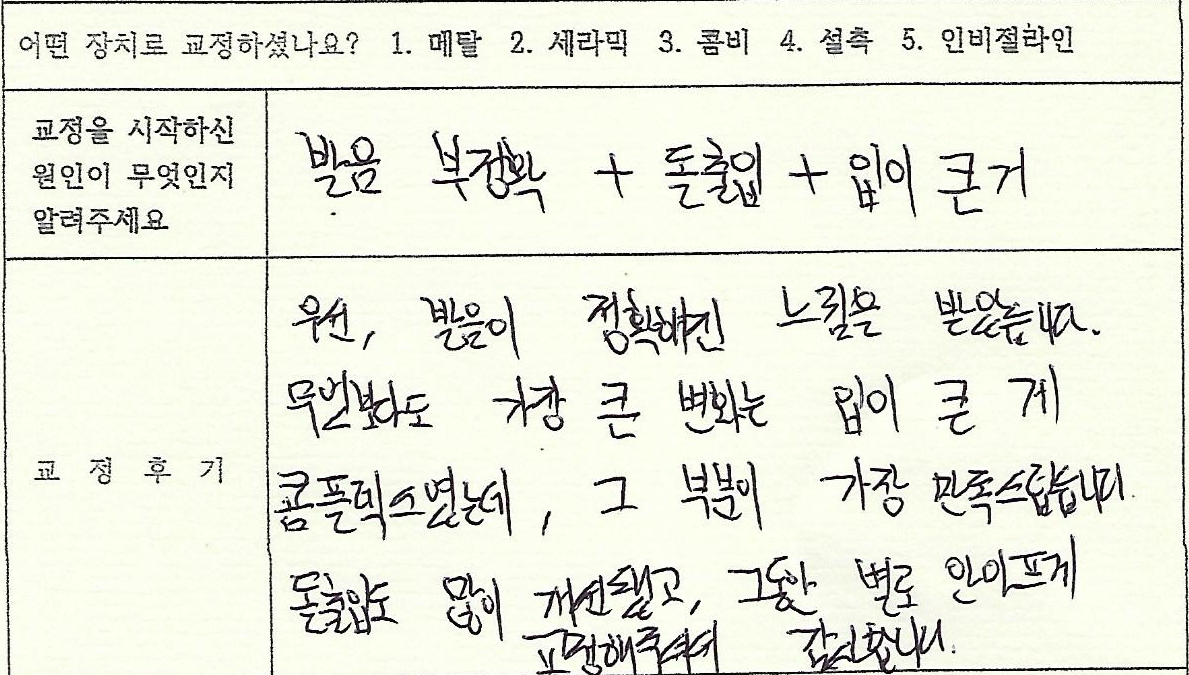 어떤 장치로 교정하셨나요? 1. 메탈 2. 세라믹 3. 콤비 4. 설측 5. 인비절라인
교정을 시작하신
원인이 무엇인지
알려주세요
발음 부정확 + 돌출입 + 입이 큰 거
교 정 후 기
우선, 발음이 정확해진 느낌을 받았습니다.
무엇보다도 가장 큰 변화는 입이 큰 게
콤플렉스였는데, 그 부분이 가장 만족스럽습니다.
돌출입도 많이 개선됐고, 그동안 별로 안아프게
교정해주셔서 감사합니다.